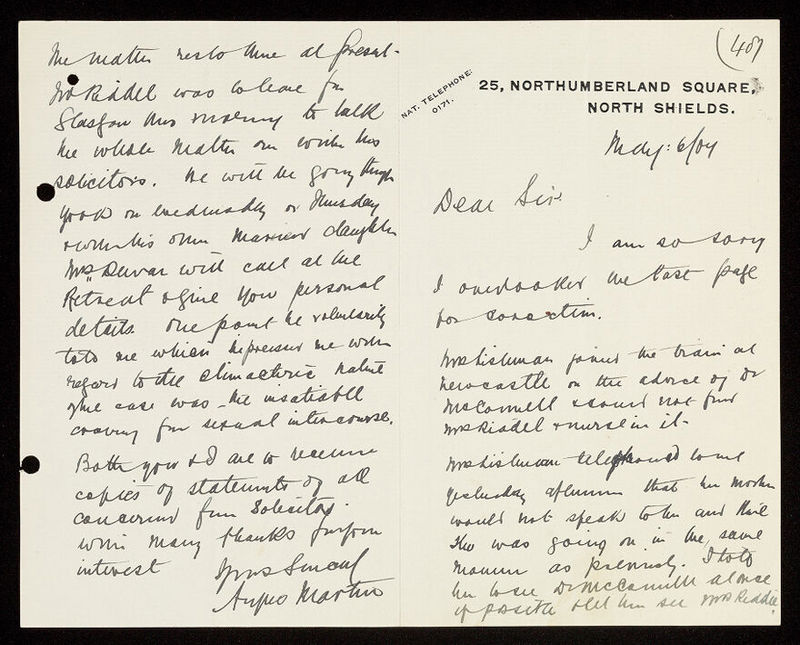 (407
NAT. TELEPHONE:
0171.
25, NORTHUMBERLAND SQUARE,
NORTH SHIELDS.
May: 6/04
Dear Sir
I am so sorry
I overlooked the last page
for correction.
Mrs Lishman joined the train at
Newcastle on the advice of Dr
McConnell & could not find
Mrs Riddel & nurse in it -
Mrs Lishman telephoned to me
yesterday afternoon that her mother
would not speak to her and that
she was going on in the same
manner as previously. I told
her to see Dr McConnell alone
if possible & let him see Mrs Riddel.
The matter rests there at present -
Mr Riddel was to leave for
Glasgow this morning to talk
the whole matter over with his
solicitors. He will be going through
York on Wednesday or Thursday
& with his own married daughter
Mrs Dewar will call at the
Retreat & give you personal
details. One point he voluntarily
told me which impressed me with
regard to the climacteric nature
of the case was - the insatiable
craving for sexual intercourse.
Both you & I are to receive
copies of statements of all
concerned from Solicitors.
With many thanks for your
interest
Yours Sincerely
Martin